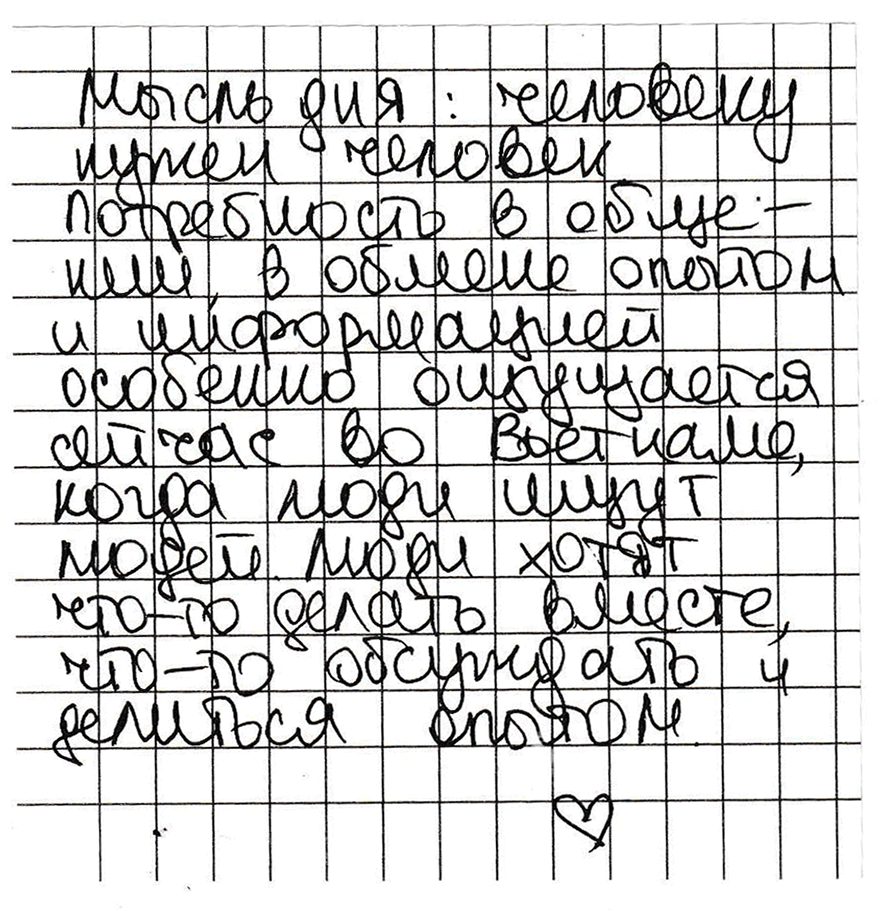 Мысль дня: человеку
нужен человек
Потребность в обще-
нии, в обмене опытом
и информацией
особенно ощущается
сейчас во Вьетнаме,
когда люди ищут
людей. Люди хотят
что-то делать вместе,
что-то обсуждать и
делиться опытом.